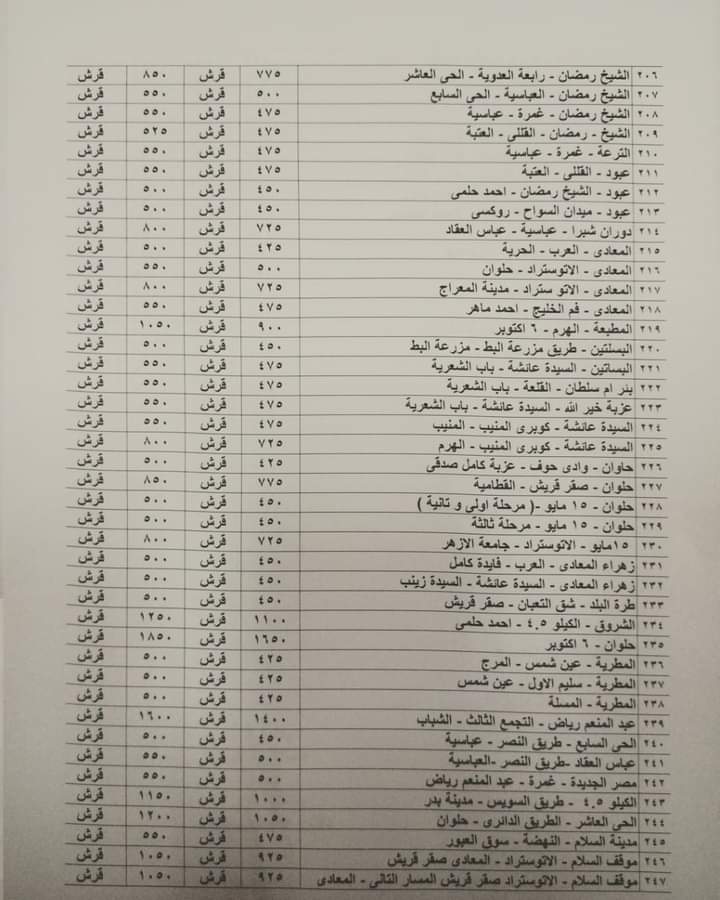 ٢٠٦ الشيخ رمضان - رابعة العدوية - الحى العاشر ٧٧٥ قرش ٨٥٠ قرش
٢٠٧ الشيخ رمضان - العباسية - الحى السابع ٥٠٠ قرش ٥٥٠ قرش
٢٠٨ الشيخ رمضان - غمرة - عباسية ٤٧٥ قرش ٥٥٠ قرش
٢٠٩ الشيخ - رمضان - القللى - العتبة ٤٧٥ قرش ٥٢٥ قرش
٢١٠ الترعة - غمرة - عباسية ٤٧٥ قرش ٥٥٠ قرش
٢١١ عبود - القللى - العتبة ٤٧٥ قرش ٥٥٠ قرش
٢١٢ عبود - الشيخ رمضان - احمد حلمى ٤٥٠ قرش ٥٠٠ قرش
٢١٣ عبود - ميدان السواح - روكسى ٤٥٠ قرش ٥٠٠ قرش
٢١٤ دوران شبرا - عباسية - عباس العقاد ٧٢٥ قرش ٨٠٠ قرش
٢١٥ المعادى - العرب - الحرية ٤٢٥ قرش ٥٠٠ قرش
٢١٦ المعادى - الاتوستراد - حلوان ٥٠٠ قرش ٥٥٠ قرش
٢١٧ المعادى - الاتو ستراد - مدينة المعراج ٧٢٥ قرش ٨٠٠ قرش
٢١٨ المعادى - فم الخليج - احمد ماهر ٤٧٥ قرش ٥٥٠ قرش
٢١٩ المطبعة - الهرم - ٦ اكتوبر ٩٠٠ قرش ١٠٥٠ قرش
٢٢٠ البسلتين - طريق مزرعة البط - مزرعة البط ٤٥٠ قرش ٥٠٠ قرش
٢٢١ البساتين - السيدة عائشة - باب الشعرية ٤٧٥ قرش ٥٥٠ قرش
٢٢٢ بئر ام سلطان - القلعة - باب الشعرية ٤٧٥ قرش ٥٥٠ قرش
٢٢٣ عزبة خير الله - السيدة عائشة - باب الشعرية ٤٧٥ قرش ٥٥٠ قرش
٢٢٤ السيدة عائشة - كوبرى المنيب - المنيب ٤٧٥ قرش ٥٥٠ قرش
٢٢٥ السيدة عائشة - كوبرى المنيب - الهرم ٧٢٥ قرش ٨٠٠ قرش
٢٢٦ حاوان - وادى حوف - عزبة كامل صدقى ٤٢٥ قرش ٥٠٠ قرش
٢٢٧ حلوان - صقر قريش - القطامية ٧٧٥ قرش ٨٥٠ قرش
٢٢٨ حلوان - ١٥ مايو -( مرحلة اولى و تانية ) ٤٥٠ قرش ٥٠٠ قرش
٢٢٩ حلوان - ١٥ مايو - مرحلة ثالثة ٤٥٠ قرش ٥٠٠ قرش
٢٣٠ ١٥مايو - الاتوستراد - جامعة الازهر ٧٢٥ قرش ٨٠٠ قرش
٢٣١ زهراء المعادى - العرب - فايدة كامل ٤٥٠ قرش ٥٠٠ قرش
٢٣٢ زهراء المعادى - السيدة عائشة - السيدة زينب ٤٥٠ قرش ٥٠٠ قرش
٢٣٣ طرة البلد - شق التعبان - صقر قريش ٤٥٠ قرش ٥٠٠ قرش
٢٣٤ الشروق - الكيلو ٤.٥ - احمد حلمى ١١٠٠ قرش ١٢٥٠ قرش
٢٣٥ حلوان - ٦ اكتوبر ١٦٥٠ قرش ١٨٥٠ قرش
٢٣٦ المطرية - عين شمس - المرج ٤٢٥ قرش ٥٠٠ قرش
٢٣٧ المطرية - سليم الاول - عين شمس ٤٢٥ قرش ٥٠٠ قرش
٢٣٨ المطرية - المسلة ٤٢٥ قرش ٥٠٠ قرش
٢٣٩ عبد المنعم رياض - التجمع الثالث - الشباب ١٤٠٠ قرش ١٦٠٠ قرش
٢٤٠ الحى السابع - طريق النصر - عباسية ٤٥٠ قرش ٥٠٠ قرش
٢٤١ عباس العقاد -طريق النصر -العباسية ٥٠٠ قرش ٥٥٠ قرش
٢٤٢ مصر الجديدة - غمرة - عبد المنعم رياض ٥٠٠ قرش ٥٥٠ قرش
٢٤٣ الكيلو ٤.٥ - طريق السويس - مدينة بدر ١٠٠٠ قرش ١١٥٠ قرش
٢٤٤ الحى العاشر - الطريق الدائرى - حلوان ١٠٥٠ قرش ١٢٠٠ قرش
٢٤٥ مدينة السلام - النهضة - سوق العبور ٤٧٥ قرش ٥٥٠ قرش
٢٤٦ موقف السلام - الاتوستراد - المعادى صقر قريش ٩٢٥ قرش ١٠٥٠ قرش
٢٤٧ موقف السلام - الاتوستراد صقر قريش المسار التالى - المعادى ٩٢٥ قرش ١٠٥٠ قرش